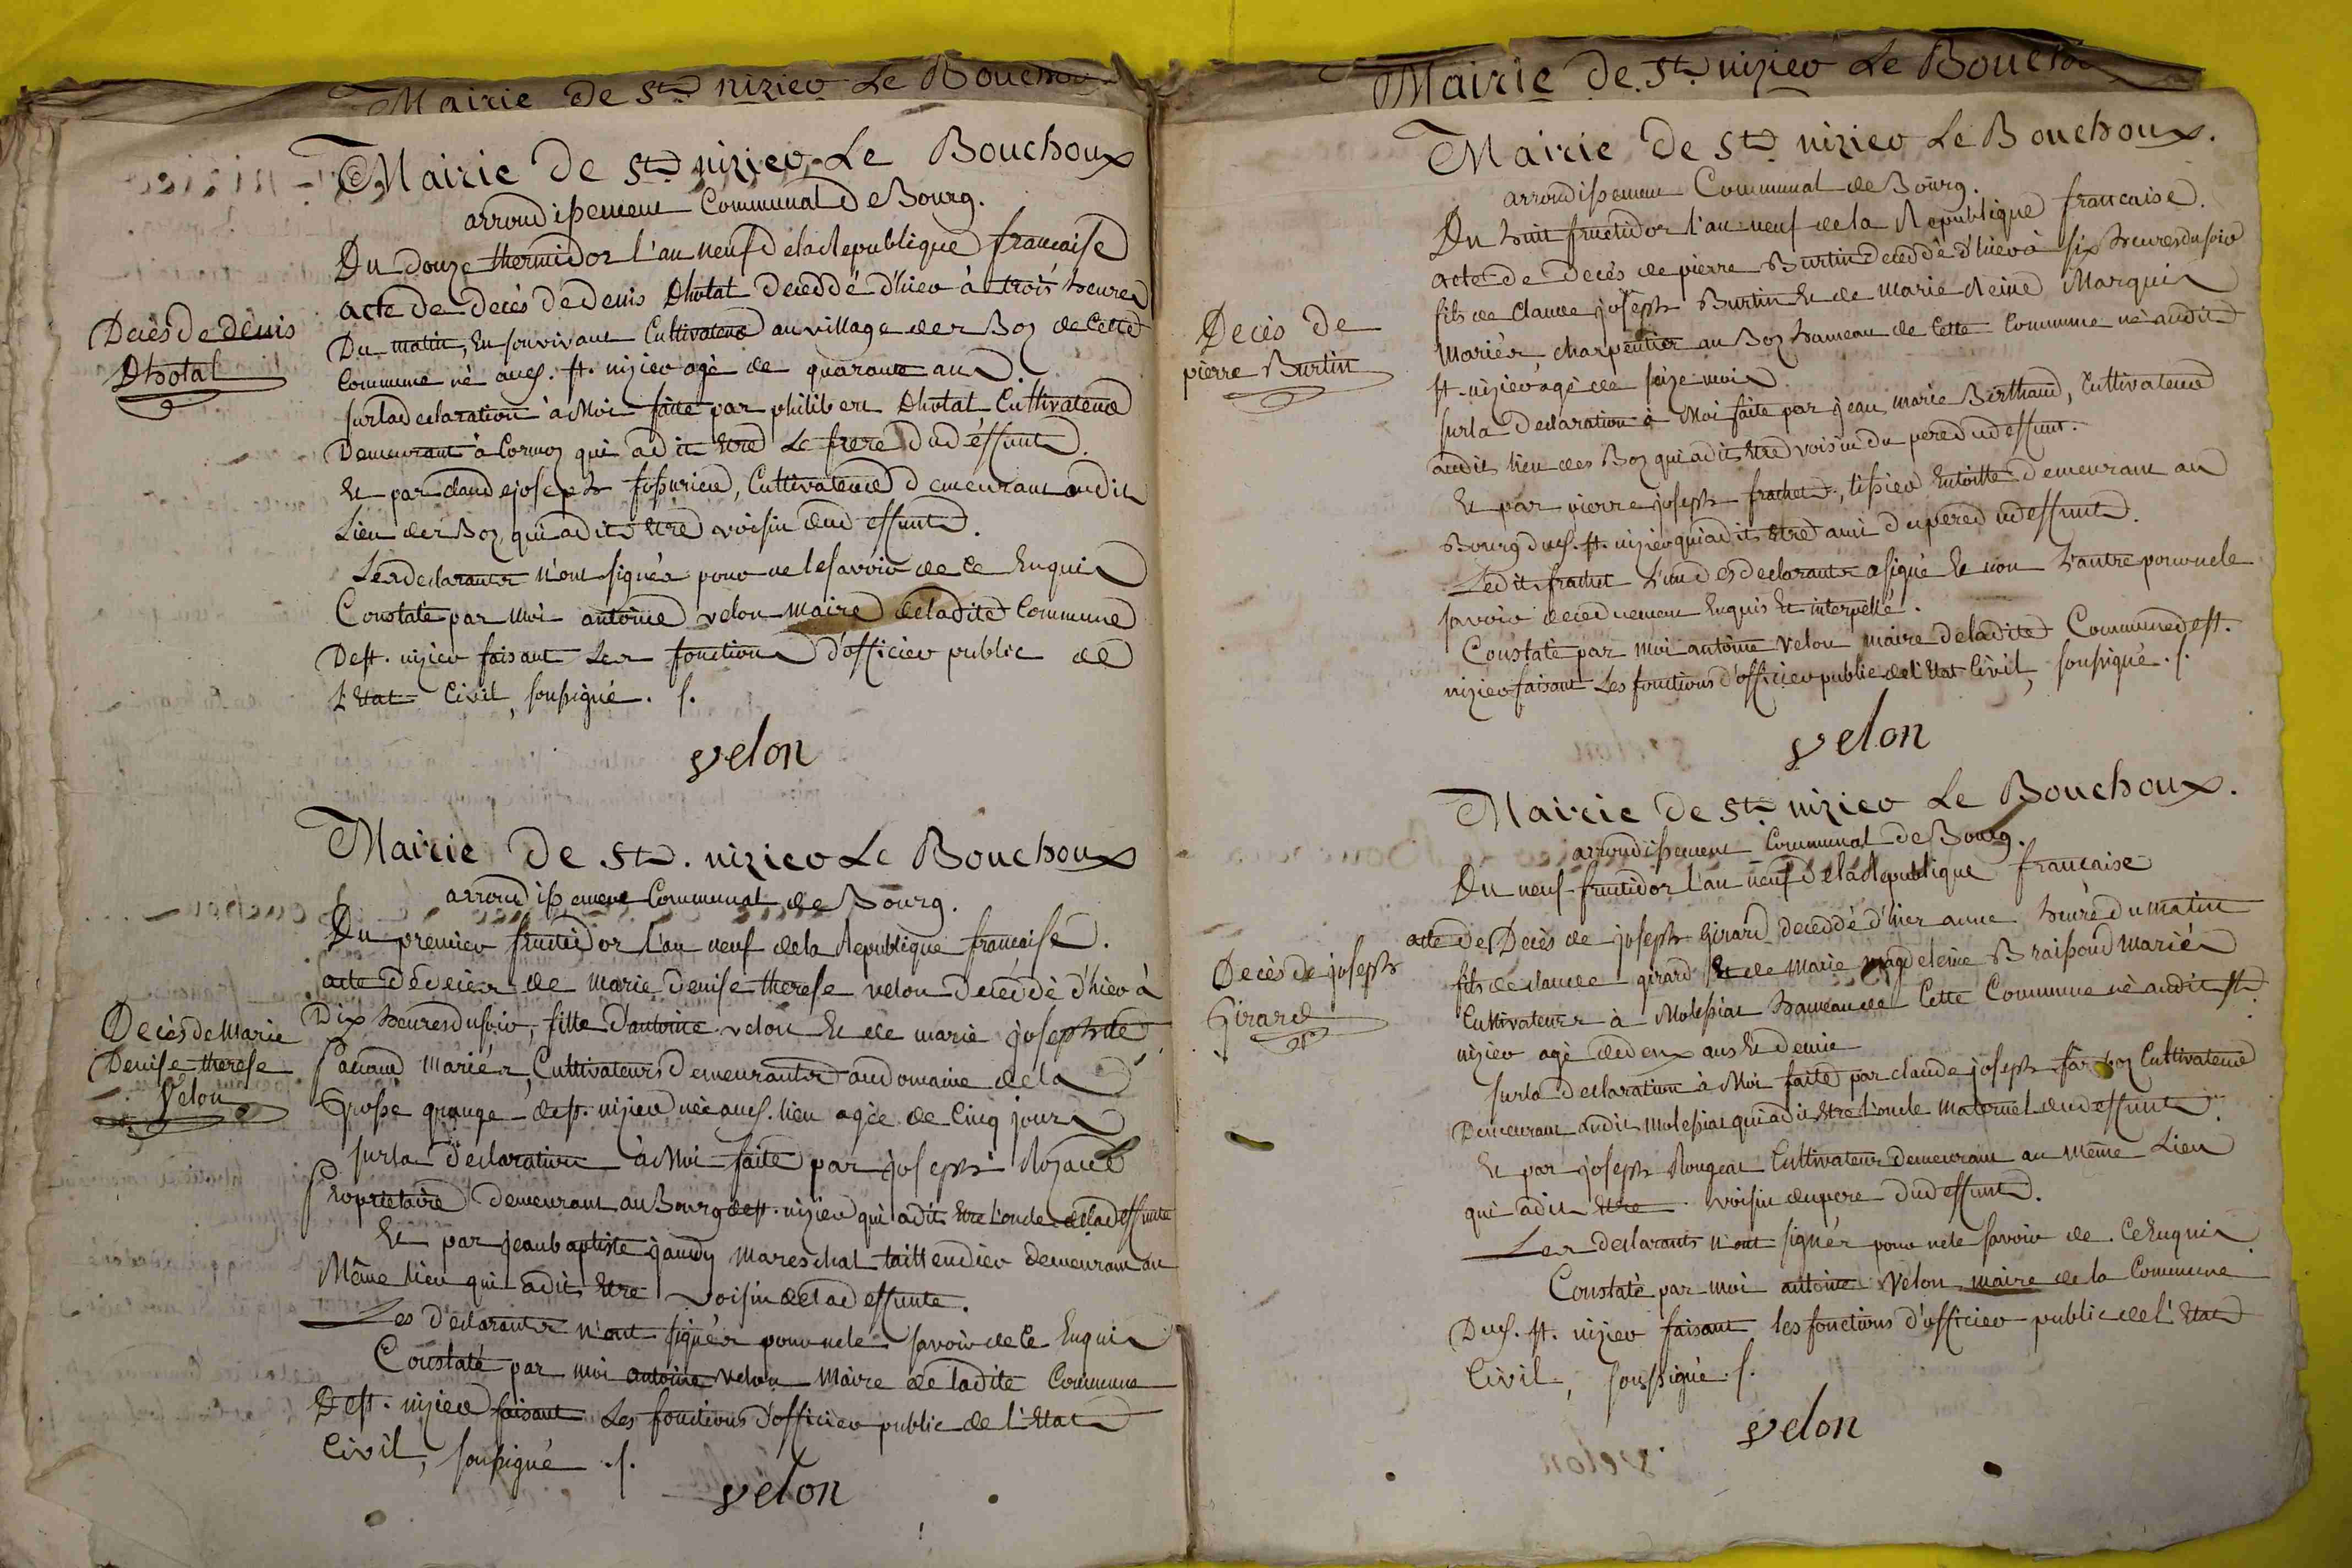 Mairie de St. nizier Le Bouchou
Mairie de St. nizier Le Bouchoux
arrondissement Communal de Bourg.
Du douze thermidor l'an neuf de la Republique francaise
acte de decès de denis Dhotal deceddé d'hier à trois heures
Du matin, En son vivant Cultivateur au village des Boz de Cette
Commune né aud. st. nizier agé de quarante ans
Decès de denis
Dhotal
sur la declaration à Moi faite par philibert Dhotal Cultivateur
Demeurant à Cormoz qui a dit Etre Le frere dud éffunt.
Et par claude joseph fossurier, Cultivateur demeurant audit
Lieu des Boz qui a dit Etre voisin dud effunt.
Les declarants n'ont signés pour ne le savoir de ce Enquis
Constaté par Moi antoine velon maire de ladite Commune
De st. nizier faisant Les fonctions d'officier public de
L'Etat Civil, soussigné. s.
velon
Mairie de St. nizier Le Bouchoux
arrondissement Communal de Bourg.
Du premier fructidor l'an neuf de la Republique francaise.
acte de decès de marie denise therese velon deceddé d'hier à
Dix heures du soir, fille d'antoine velon Et de marie josephte
Mariés, Cultivateurs demeurants au domaine de la
Grosse grange de st. nizier née aud. lieu agée de Cinq jours
Decès de Marie
Denise therese
Velon
sur la declaration à Moi faite par joseph
Propriétaire demeurant au Bourg de st. nizier qui a dit Etre l'oncle de lad effunte
Et par jean baptiste jaudy Mareschal taillendier demeurant au
Même lieu qui a dit Etre voisin de lad effunte.
Les déclarants n'ont signés pour ne le savoir de Ce Enquis
Constaté par moi antoine velon Maire de ladite Commune
De st. nizier faisant Les fonctions d'officier public de l'Etat
Civil, soussigné s.
velon
Mairie de St. nizier Le Bouchou
Mairie de St. nizier Le Bouchoux.
arrondissement Communal de Bourg.
Du huit fructidor l'an neuf de la Republique francaise.
acte de decès de pierre Burtin deceddé d'hier à six heures du soir
fils de Claude joseph Burtin Et de Marie Reine Marquis
Mariés charpentier au Boz hameau de Cette Commune né audit
st. nizier agé de seize mois
Decès de
pierre Burtin
sur la declaration à Moi faite par jean marie Berthaud, Cultivateur
audit lieu des Boz qui a dit Etre voisin du pere dud effunt.
Et par pierre joseph frachet, tissier Entoille demeurant au
Bourg dud. st. nizier qui a dit Etre ami du pere dud effunt.
Ledit frachet L'un des declarants a signé Et non L'autre pour ne le
savoir de ce duement Enquis Et interpellé.
Constaté par moi antoine velon maire de ladite Commune de st.
nizier faisant Les fonctions d'officier public de l'Etat Civil, soussigné. s.
velon
Mairie de St. nizier Le Bouchoux.
arrondissement Communal de Bourg.
Du neuf fructidor l'an neuf de la Republique francaise
acte de Decès de joseph Girard deceddé d'hier a une heure du matin
fils de claude girard Et de Marie magdeleine Braissoud mariés
Cultivateurs à Molessiat hameau de Cette Commune né audit st.
nizier agé de deux ans Et demie
Decès de joseph
Girard
sur la declaration à Moi faite par claude joseph Cultivateur
Demeurant audit Molessiat qui a dit Etre l'oncle Maternel dud effunt
Et par joseph Rougeat Cultivateur demeurant au même Lieu
qui a dit Etre voisin du pere dud effunt.
Les declarants n'ont signés pour ne le savoir de Ce Enquis
Constaté par moi antoine Velon maire de la Commune
Dud. st. nizier faisant les fonctions d'officier public de l'Etat
Civil, soussigné. s.
velon